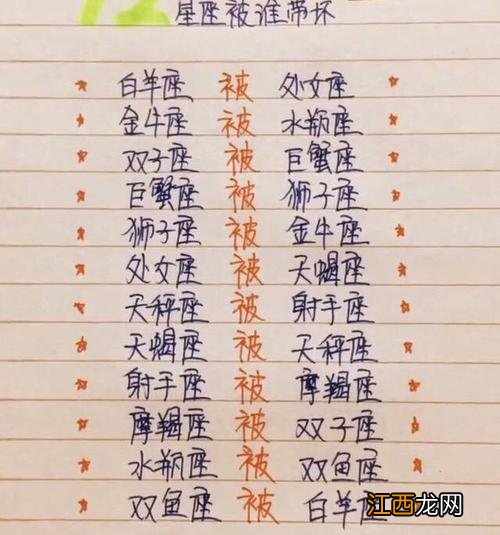 12
星座被谁带坏
白羊座 被 处女座
金牛座 被 水瓶座
双子座 被 巨蟹座
巨蟹座 被 狮子座
狮子座 被 金牛座
处女座 被 天蝎座
天秤座 被 射手座
天蝎座 被 天秤座
射手座 被 摩羯座
摩羯座 被 双子座
水瓶座 被 双鱼座
双鱼座 被 白羊座
江西龙网